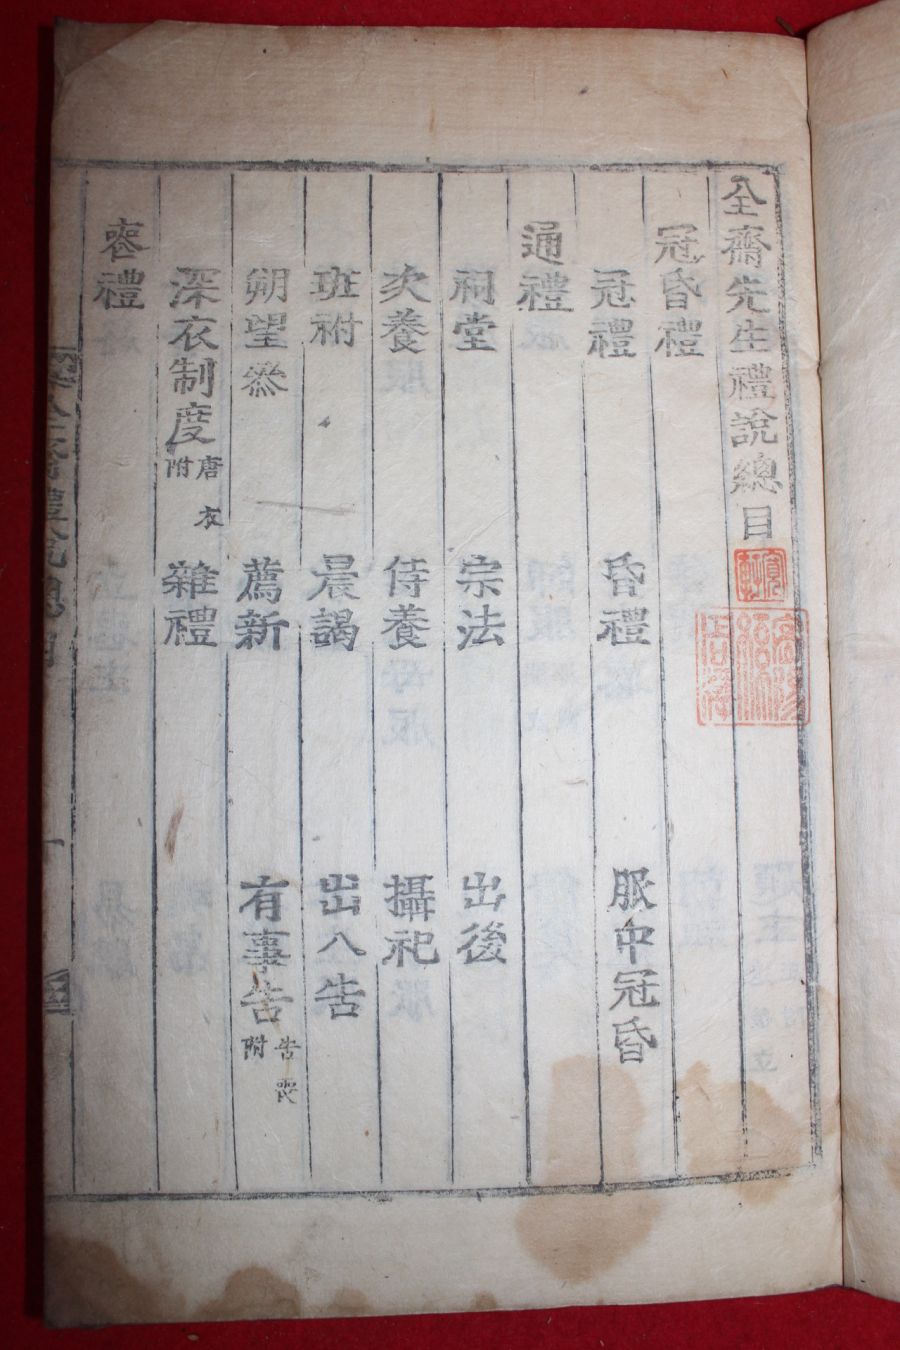 全齋先生禮說總目
冠昏禮
冠禮 昏禮 服中冠昏
通禮
祠堂 宗法 出後
次養 侍養 攝祀
班祔 晨謁 出入告
朔望參 薦新 有事告 告喪附
深衣制度 唐衣附 雜禮
喪禮
全齋禮說總目 一